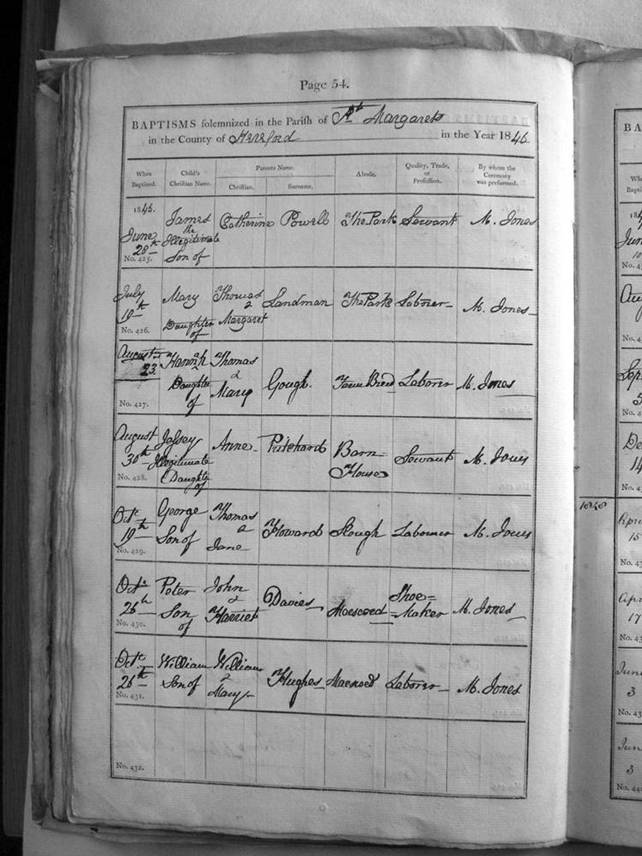 Page 54.
BAPTISMS solemnized in the Parish of St Margarets
in the County of Hereford in the Year 1846
When Baptized. Child's Christian Name. Parents Name. Christian. Surname. Abode. Quality, Trade, or Profession. By whom the Ceremony was performed.
1846.
June 28th No. 425. James the Illegitimate Son of Catherine Powell The Park Servant M. Jones
July 19th No. 426. Mary Daughter of Thomas & Margaret Landman The Park Laborer M. Jones
August 23 No. 427. Hannah Daughter of Thomas & Mary Gough. Laborer M. Jones
August 30th No. 428. Illegitimate Daughter of Anne Pritchard Barn House Servant M. Jones
Oct. 19th No. 429. George Son of Thomas & Jane Howard Slough Labourer M. Jones
Octr 25th No. 430. Peter Son of John & Harriet Davies Maescoed Shoe=Maker M. Jones
Octr 25th No. 431. William Son of William & Mary Hughes Maescoed Laborer M. Jones
No. 432.
BA
1848